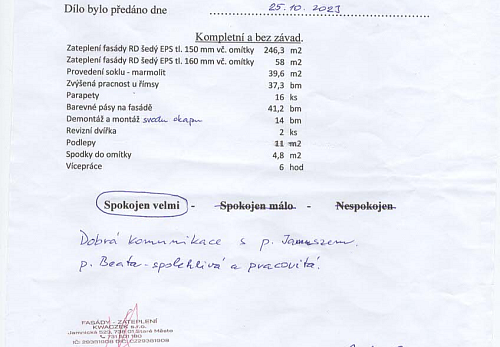 Dílo bylo předáno dne 25.10.2023
Kompletní a bez závad.
Zateplení fasády RD šedý EPS tl. 150 mm vč. omítky 246,3 m2
Zateplení fasády RD šedý EPS tl. 160 mm vč. omítky 58 m2
Provedení soklu - marmolit 39,6 m2
Zvýšená pracnost u římsy 37,3 bm
Parapety 16 ks
Barevné pásy na fasádě 41,2 bm
Demontáž a montáž svodu okapu 14 bm
Revizní dvířka 2 ks
Podlepy 11 m2
Spodky do omítky 4,8 m2
Vícepráce 6 hod
Spokojen velmi - Spokojen málo - Nespokojen
Dobrá komunikace s p. Januszem.
p. Beata - spolehlivá a pracovitá.
FASÁDY - ZATEPLENÍ
KWACZEK s.r.o.
Jamnická 523, 738 01 Staré Město
731 501 180